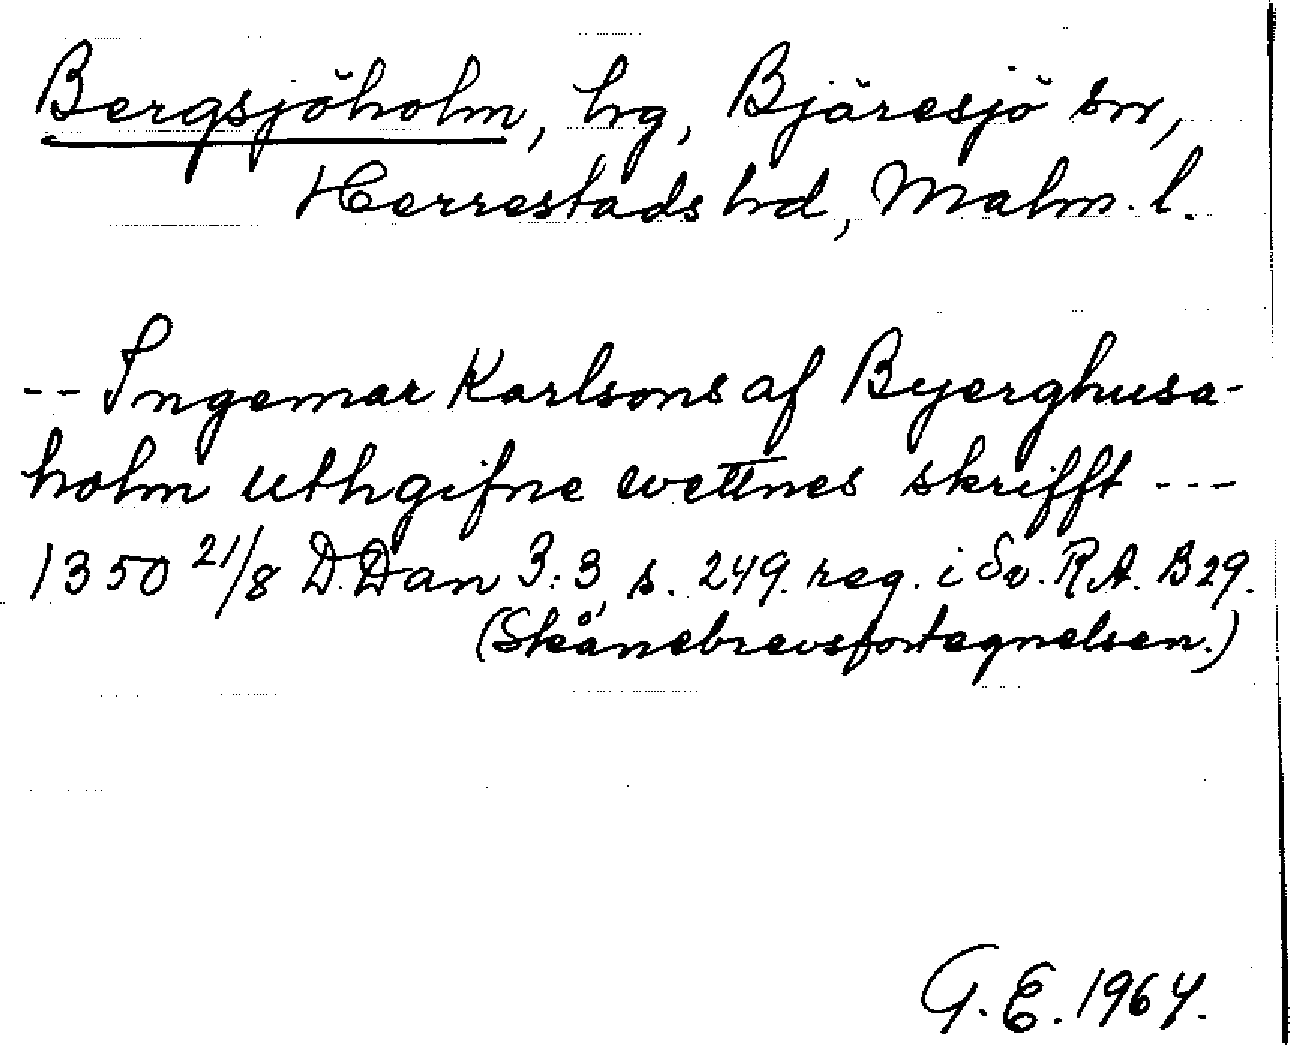 Bergsjöholm, hg, Bjäresjö sn,
Herrestads hd, Malm. l.
-- Ingemar Karlsons af Byerghusa-
holm uthgifne wettnes skrifft ---
1350 21/8 D. Dan 3:3, s. 249. reg. i Sv. R.A. B 29.
(Skånebrevsfortegnelsen.)
G. E. 1964.